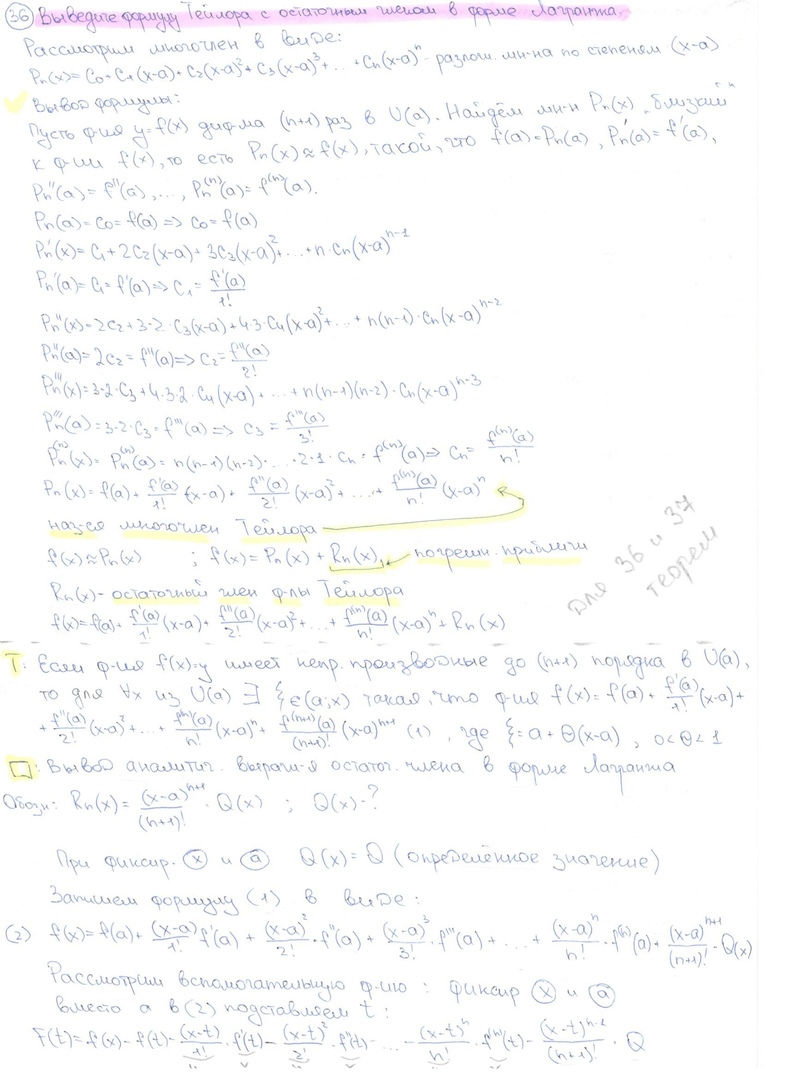 36 Выведите формулу Тейлора с остаточным членом в форме Лагранжа.
Рассмотрим многочлен в виде:
Pn(x)=C₀+C₁(x-a)+C₂(x-a)²+C₃(x-a)³+...+Cn(x-a)ⁿ - разлож. мн-на по степеням (x-a)
Вывод формулы:
Пусть ф-ия y=f(x) диф-ма (n+1) раз в U(a). Найдём мн-н Pn(x), близкий
к ф-ии f(x), то есть Pn(x)≈f(x), такой, что f(a)=Pn(a), Pn'(a)=f'(a),
Pn''(a)=f''(a),..., Pn⁽ⁿ⁾(a)=f⁽ⁿ⁾(a).
Pn(a)=C₀=f(a)=>C₀=f(a)
Pn'(x)=C₁+2C₂(x-a)+3C₃(x-a)²+...+n·Cn(x-a)ⁿ⁻¹
Pn'(a)=C₁=f'(a)=>C₁=f'(a)/1!
Pn''(x)=2C₂+3·2·C₃(x-a)+4·3·C₄(x-a)²+...+n(n-1)·Cn(x-a)ⁿ⁻²
Pn''(a)=2C₂=f''(a)=>C₂=f''(a)/2!
Pn'''(x)=3·2·C₃+4·3·2·C₄(x-a)+...+n(n-1)(n-2)·Cn(x-a)ⁿ⁻³
Pn'''(a)=3·2·C₃=f'''(a)=>C₃=f'''(a)/3!
Pn⁽ⁿ⁾(x)=Pn⁽ⁿ⁾(a)=n(n-1)(n-2)·...·2·1·Cn=f⁽ⁿ⁾(a)=>Cn=f⁽ⁿ⁾(a)/n!
Pn(x)=f(a)+f'(a)/1!·(x-a)+f''(a)/2!(x-a)²+...+f⁽ⁿ⁾(a)/n!(x-a)ⁿ
наз-ся многочлен Тейлора
f(x)≈Pn(x) ; f(x)=Pn(x)+Rn(x) погрешн. приближ
Для 36 и 37 теорем
Rn(x)- остаточный член ф-лы Тейлора
f(x)=f(a)+f'(a)/1!(x-a)+f''(a)/2!(x-a)²+...+f⁽ⁿ⁾(a)/n!(x-a)ⁿ+Rn(x)
Т: Если ф-ия f(x)=y имеет непр. производные до (n+1) порядка в U(a),
то для ∀x из U(a) ∃ ξ∈(a;x) такая, что ф-ия f(x)=f(a)+f'(a)/1!(x-a)+
+f''(a)/2!(x-a)²+...+f⁽ⁿ⁾(a)/n!(x-a)ⁿ+f⁽ⁿ⁺¹⁾(a)/(n+1)!(x-a)ⁿ⁺¹ (1), где ξ=a+Θ(x-a), 0<Θ<1
□: Вывод аналитич. выраж-я остаточ. члена в форме Лагранжа
Обозн: Rn(x)=(x-a)ⁿ⁺¹/(n+1)!·Q(x) ; Q(x)-?
При фиксир. x и a Q(x)=Q (определённое значение)
Запишем формулу (1) в виде:
(2) f(x)=f(a)+(x-a)/1!f'(a)+(x-a)²/2!·f''(a)+(x-a)³/3!·f'''(a)+...+(x-a)ⁿ/n!·f⁽ⁿ⁾(a)+(x-a)ⁿ⁺¹/(n+1)!·Q(x)
Рассмотрим вспомогательную ф-ию: фиксир x и a
вместо a в (2) подставляем t:
F(t)=f(x)-f(t)-(x-t)/1!·f'(t)-(x-t)²/2!·f''(t)-...-(x-t)ⁿ/n!·f⁽ⁿ⁾(t)-(x-t)ⁿ⁺¹/(n+1)!·Q